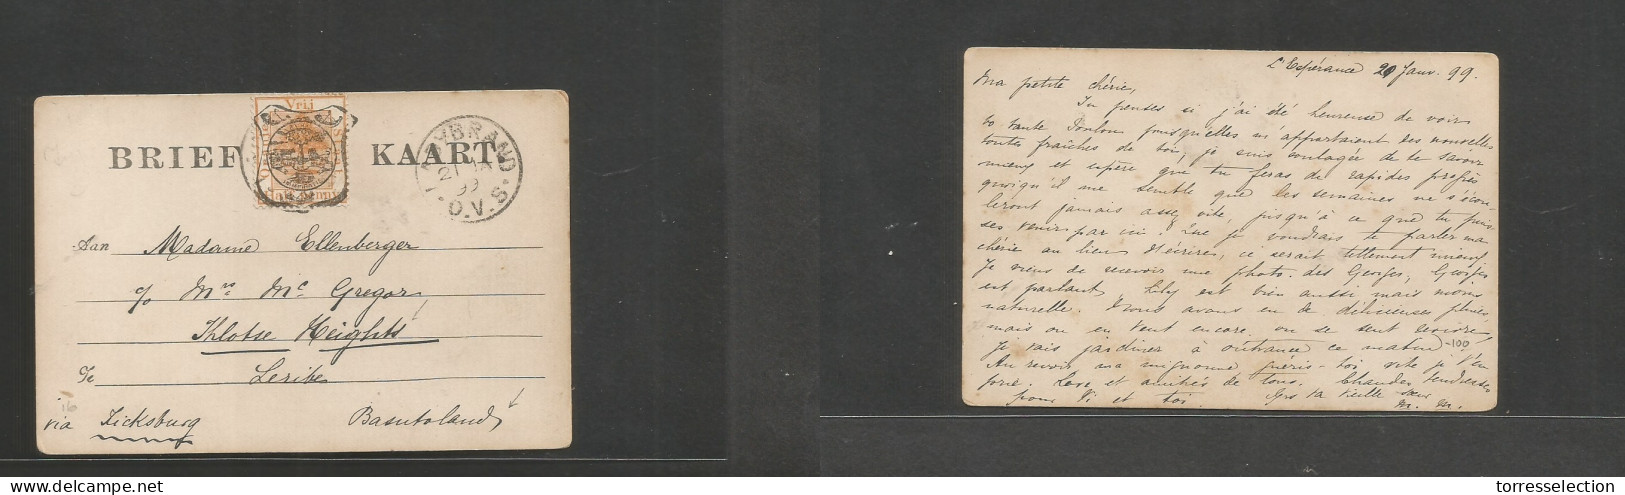 BRIEF KAART
Vrij
LADYBRAND
21 JA
99
O.V.S.
Aan Madame Ellenberger
c/o Mrs Mc Gregor
Thlotse Heights
Te Leribe
16
via Ficksburg Basutoland
L'Espérance 20 Janv. 99.
Ma petite chérie,
Tu penses si j'ai été heureuse de voir
ta tante Toulou puisqu'elles m'apportaient des nouvelles
toutes fraîches de toi, je suis soulagée de te savoir
mieux et espère que tu feras de rapides progrès
quoiqu'il me semble que les semaines ne s'écou-
leront jamais assez vite, jusqu'à ce que tu puis-
ses venir par ici. Que je voudrais te parler ma
chérie au lieu d'écrire, ce serait tellement mieux
Je viens de recevoir une photo. des Georges, Georges
est parlant, Lily est bien aussi mais moins
naturelle. Nous avons eu de délicieuses pluies
mais on en veut encore, on se sent
Je vais jardiner à outrance ce matin -100
Au revoir ma mignonne guéris-toi vite je t'en
prie. Love et amitiés de tous. Chaudes tendresses
pour Vi et toi. Ta vieille sœur
M. M.
torresselection